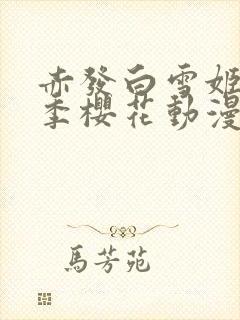 赤發白雪姬
季櫻花動漫
馬芳苑